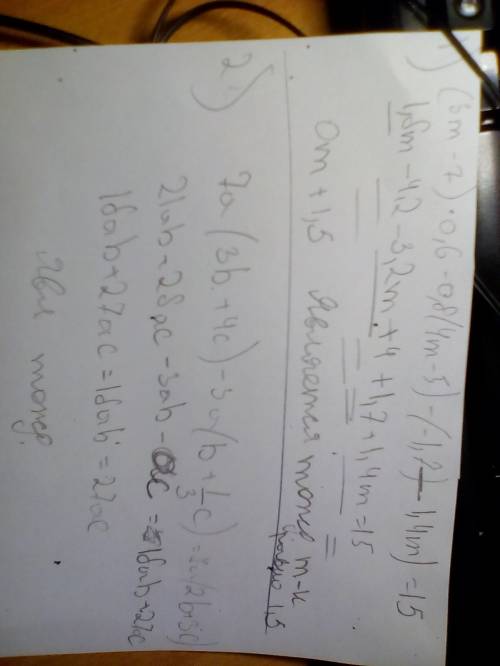 1) (3m - 7) · 0,6 - 0,8(4m - 5) - (-1,7 - 1,4m) = 1,5
1,8m - 4,2 - 3,2m + 4 + 1,7 + 1,4m = 1,5
0m + 1,5 является тожд т-к
равно 1,5
2) 7a(3b + 4c) - 3a(b + 1/3 c) =
21ab + 28ac - 3ab - ac = 18ab + 27ac
18ab + 27ac = 18ab = 27ac
явл тожд